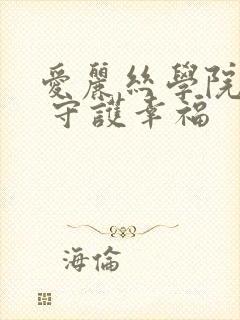 愛麗絲學院
守護幸福
海倫